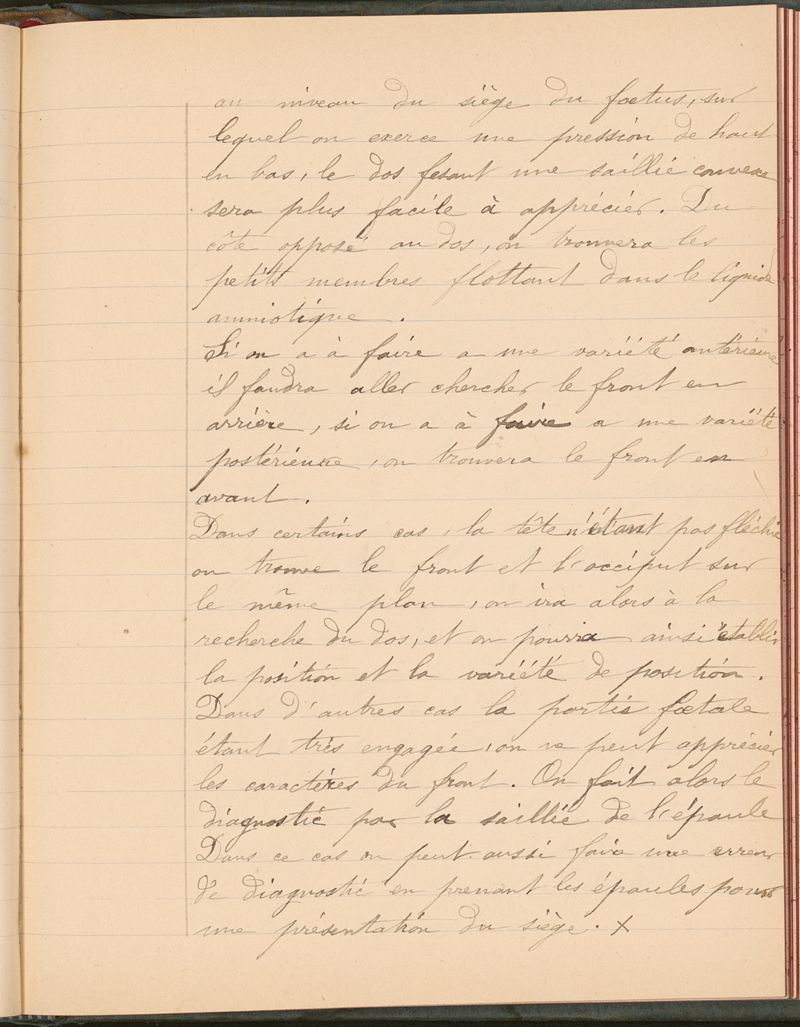 au niveau du siège du fœtus, sur
lequel on exerce une pression de haut
en bas, le dos fesant une saillie convexe
sera plus facile à apprécier. Du
côté opposé au dos, on trouvera les
petits membres flottant dans le liquide
amniotique.
Si on a à faire a une variété antérieure
il faudra aller chercher le front en
arrière, si on a à faire a une variété
postérieure, on trouvera le front en
avant.
Dans certains cas, la tête n'étant pas fléchie
on trouve le front et l'occiput sur
le même plan, on ira alors à la
recherche du dos, et on pourra ainsi établir
la position et la variété de position.
Dans d'autres cas la partie fœtale
étant très engagée, on ne peut apprécier
les caractères du front. On fait alors le
diagnostic par la saillie de l'épaule
Dans ce cas on peut aussi faire une erreur
de diagnostic en prenant les épaules pour
une présentation du siège. x